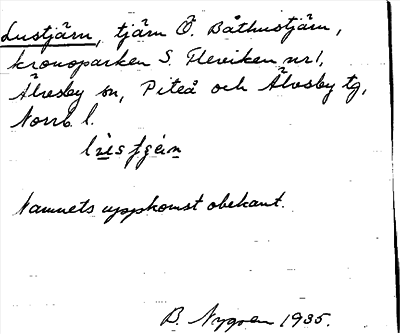 Lustjärn, tjärn Ö. Båthustjärn,
kronoparken S. Fleviken nr 1,
Älvsby sn, Piteå och Älvsby tg,
Norrb. l.
Namnets uppkomst obekant.
B. Nygren 1935.